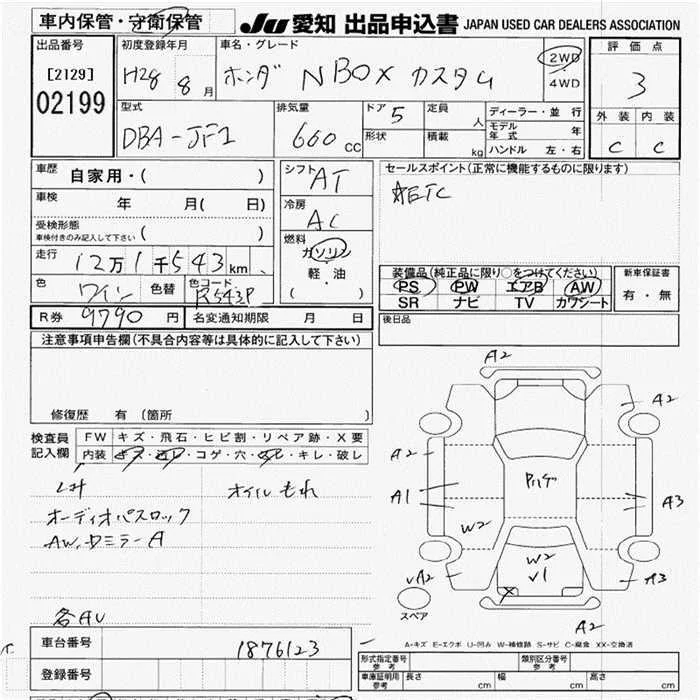 車内保管・守衛保管
JU 愛知 出品申込書 JAPAN USED CAR DEALERS ASSOCIATION
出品番号
[2129]
02199
初度登録年月
H28 8月
車名・グレード
ホンダ NBOX カスタム
2WD
4WD
評価点
3
外装 内装
C C
型式
DBA-JF1
排気量
660 cc
ドア 5
形状
定員 人
積載 kg
ディーラー・並行
モデル年式 年
ハンドル 左・右
車歴
自家用・( )
車検
年 月( 日)
受検形態
車検付きのみ記入して下さい ( )
走行
12万1千543km
色 ワイン 色替 色コード R543P
シフト AT
冷房 AC
燃料
ガソリン
軽・油
( )
セールスポイント(正常に機能するものに限ります)
ETC
装備品(純正品に限り○をつけてください)
PS PW エアB AW
SR ナビ TV カワシート
新車保証書
有・無
R券 9790 円 名変通知期限 月 日
後日品
注意事項申告欄(不具合内容等は具体的に記入して下さい)
修復歴 有 (箇所 )
検査員記入欄
FW キズ・飛石・ヒビ割・リペア跡・X要
内装 キズ・汚レ・コゲ・穴・ ・キレ・破レ
オイルもれ
オーディオパスロック
AW、ドミラーA
各AU
A2
A2
A2
A1
A3
Pルーフ
W2
W2
√1
X
√A2
A3
A2
スペア
A-キズ E-エクボ U-凹み W-補修跡 S-サビ C-腐食 XX-交換済
車台番号 1876123
登録番号
形式指定番号 参考
類別区分番号 参考
車庫証明用 参考 長さ cm 幅 cm 高さ cm